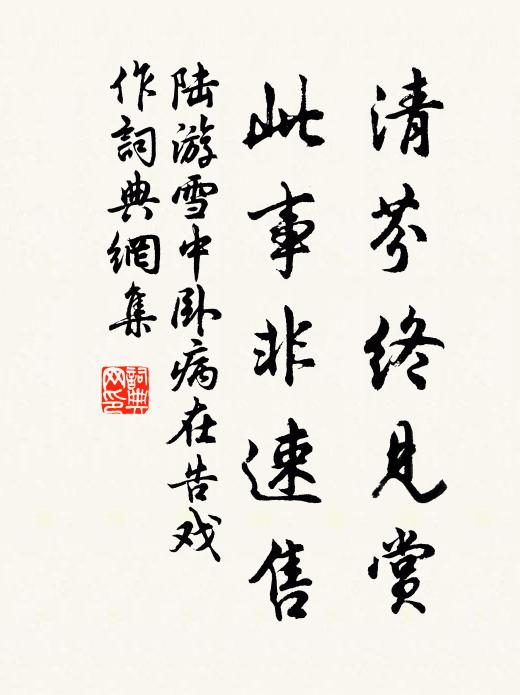 清芬终见赏
此事非速售
陆游雪中卧病在告戏
作詞典網集
詞典
网印